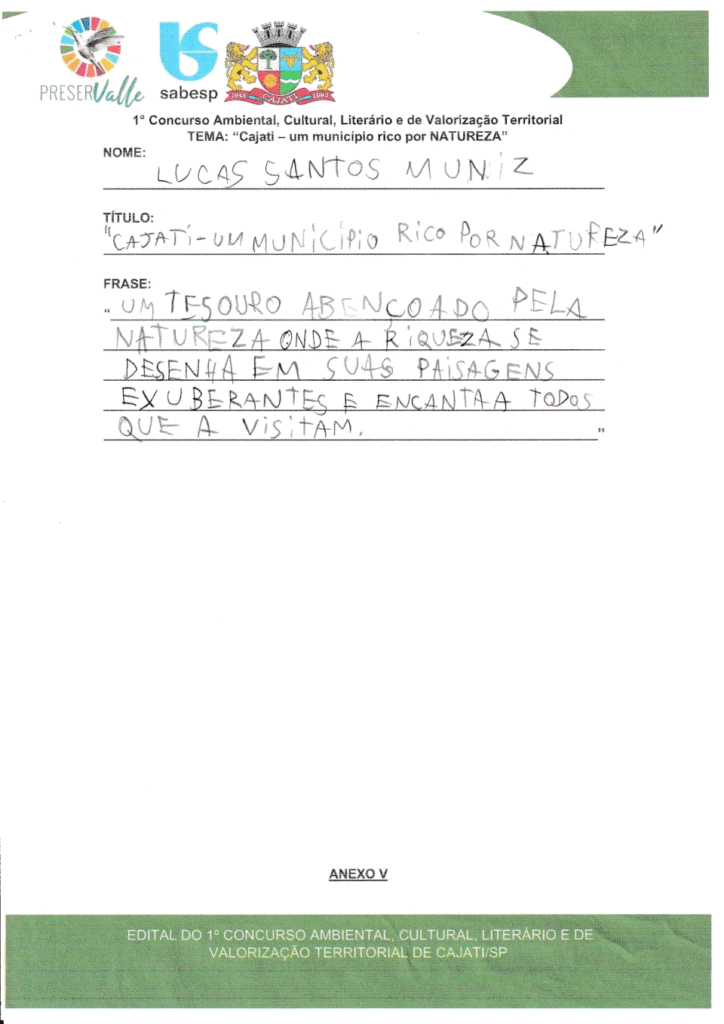 PRESERValle
sabesp
1944 CAJATI 1993
1º Concurso Ambiental, Cultural, Literário e de Valorização Territorial
TEMA: “Cajati – um município rico por NATUREZA”
NOME:
LUCAS SANTOS MUNIZ
TÍTULO:
"CAJATI-UM MUNICÍPIO RICO POR NATUREZA"
FRASE:
“UM TESOURO ABENÇOADO PELA
NATUREZA ONDE A RIQUEZA SE
DESENHA EM SUAS PAISAGENS
EXUBERANTES E ENCANTA A TODOS
QUE A VISITAM.”
ANEXO V
EDITAL DO 1º CONCURSO AMBIENTAL, CULTURAL, LITERÁRIO E DE
VALORIZAÇÃO TERRITORIAL DE CAJATI/SP